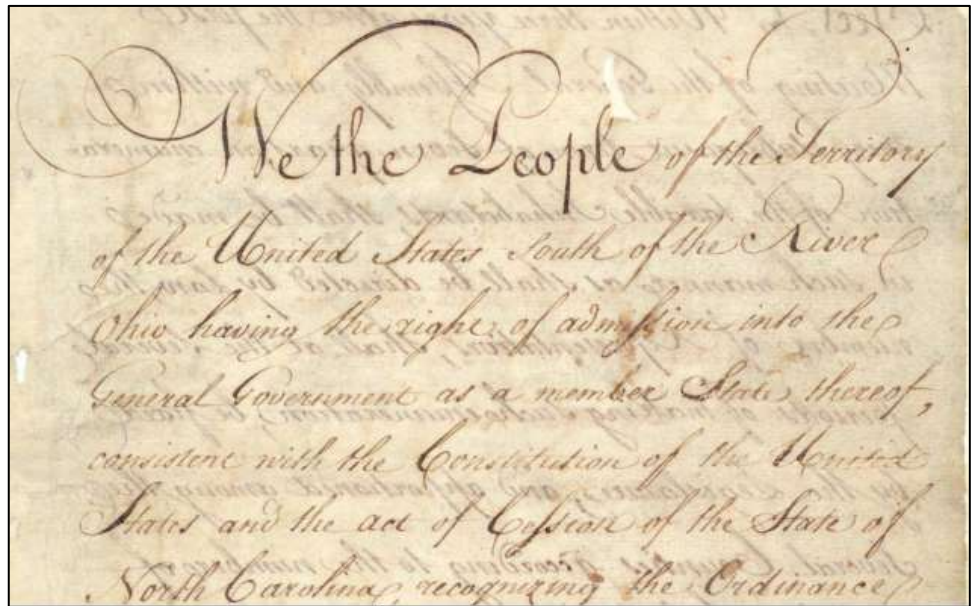 We the People of the Territory
of the United States South of the River
Ohio having the right of admission into the
General Government as a member State thereof,
consistent with the Constitution of the United
States and the act of Cession of the State of
North Carolina, recognizing the Ordinance